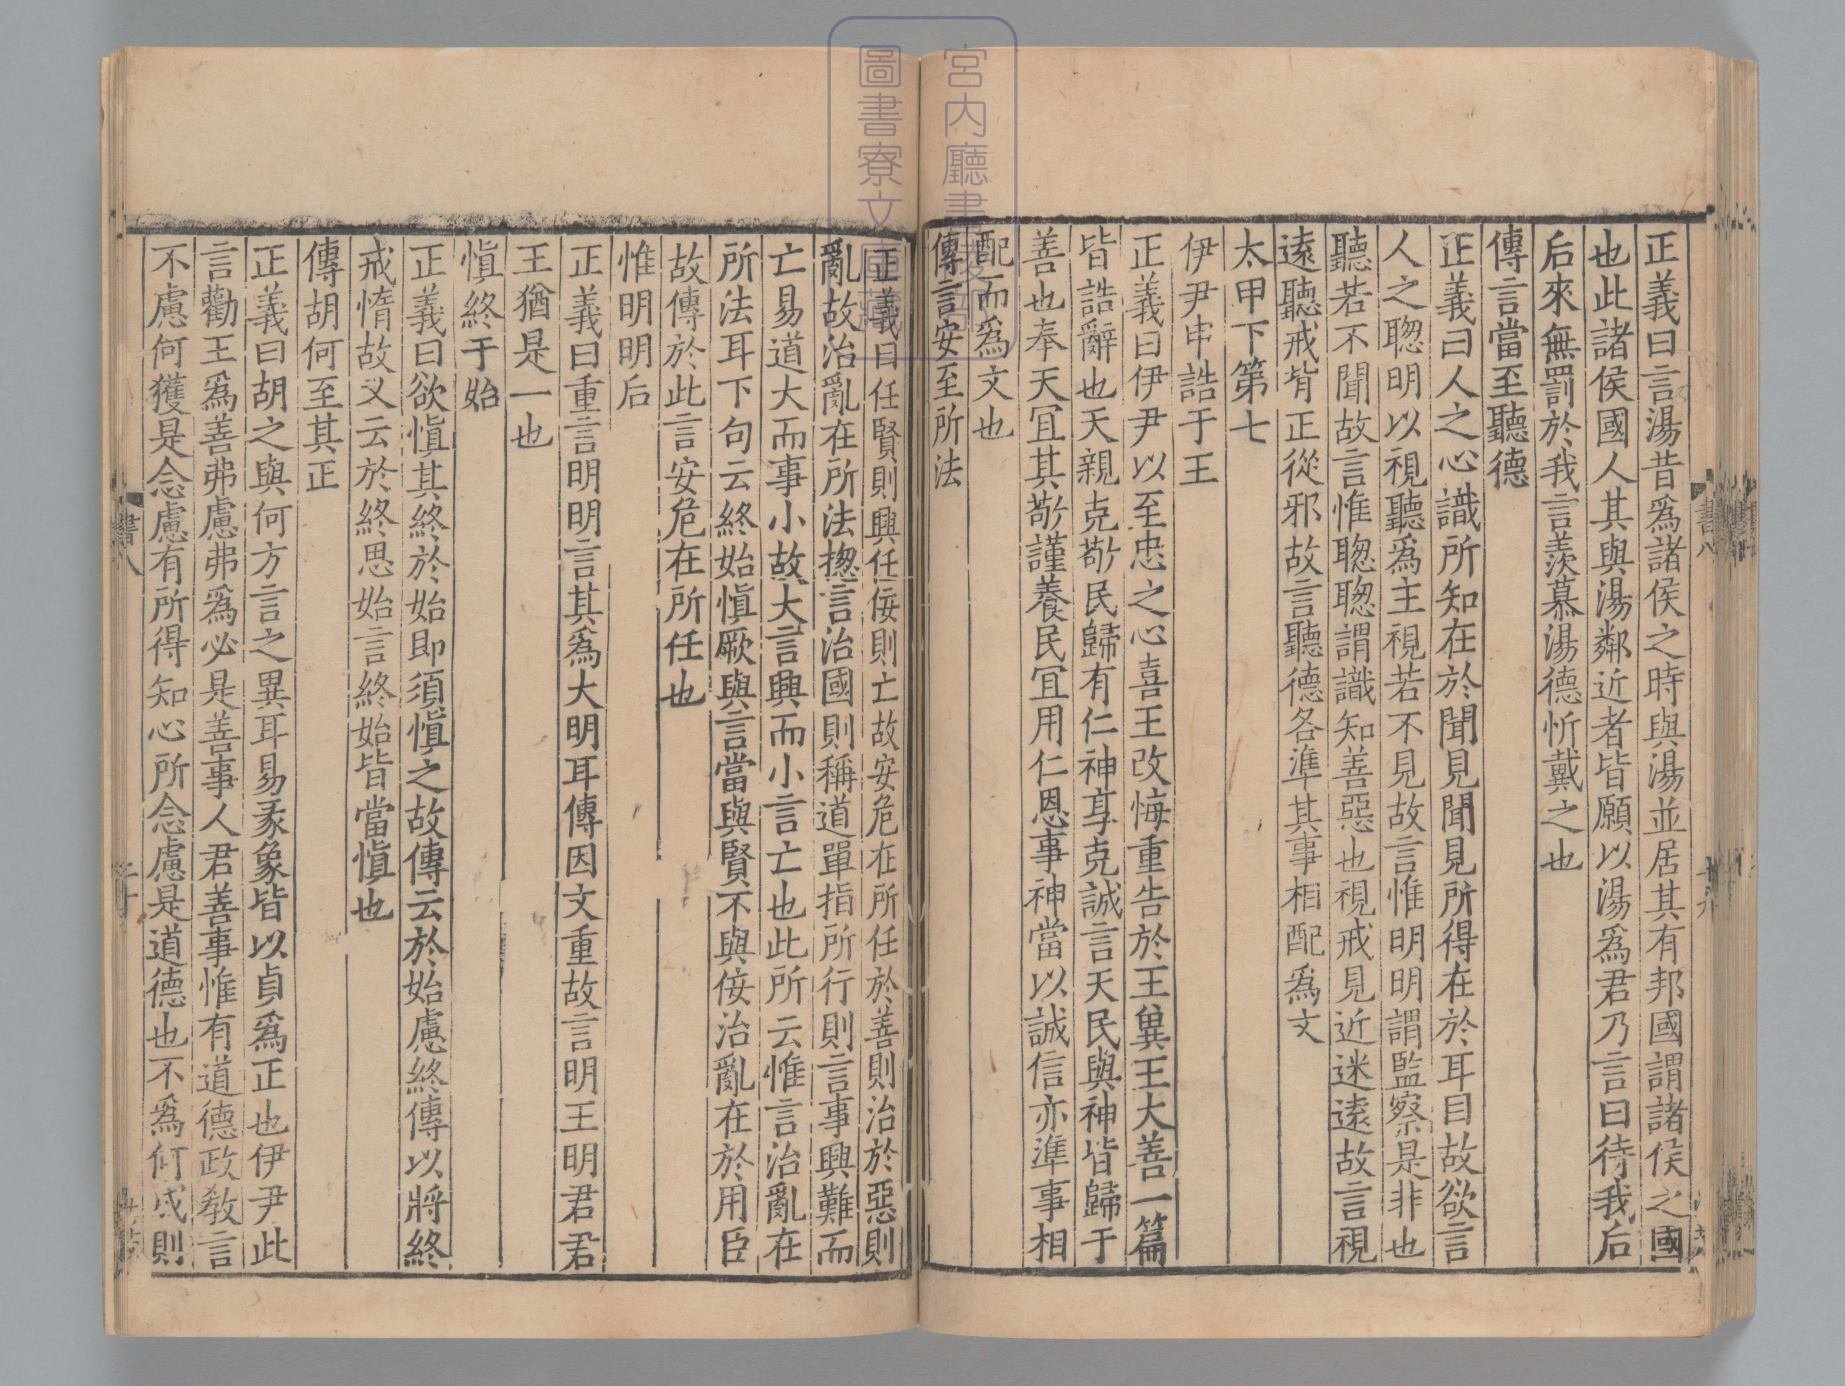 正義曰言湯昔爲諸侯之時與湯並居其有邦國謂諸侯之國
也此諸侯國人其與湯鄰近者皆願以湯爲君乃言曰待我后
后來無罰於我言羨慕湯德忻戴之也
傳言當至聽德
正義曰人之心識所知在於聞見聞見所得在於耳目故欲言
人之聦明以視聽爲主視若不見故言惟明明謂監察是非也
聽若不聞故言惟聦聦謂識知善惡也視戒見近迷遠故言視
遠聽戒背正從邪故言聽德各準其事相配爲文
太甲下第七
伊尹申誥于王
正義曰伊尹以至忠之心喜王改悔重告於王冀王大善一篇
皆誥辭也天親克敬民歸有仁神享克誠言天民與神皆歸于
善也奉天冝其敬謹養民冝用仁恩事神當以誠信亦準事相
配而爲文也
傳言安至所法
正義曰任賢則興任佞則亡故安危在所任於善則治於惡則
亂故治亂在所法揔言治國則稱道單指所行則言事興難而
亡易道大而事小故大言興而小言亡也此所云惟言治亂在
所法耳下句云終始愼厥與言當與賢不與佞治亂在於用臣
故傳於此言安危在所任也
惟明明后
正義曰重言明明言其爲大明耳傳因文重故言明王明君君
王猶是一也
愼終于始
正義曰欲愼其終於始即須愼之故傳云於始慮終傳以將終
戒惰故又云於終思始言終始皆當愼也
傳胡何至其正
正義曰胡之與何方言之異耳易彖象皆以貞爲正也伊尹此
言勸王爲善弗慮弗爲必是善事人君善事惟有道德政敎言
不慮何獲是念慮有所得知心所念慮是道德也不爲何成則
書八
二十
書八
十九
宮内廳書陵部
圖書寮文庫